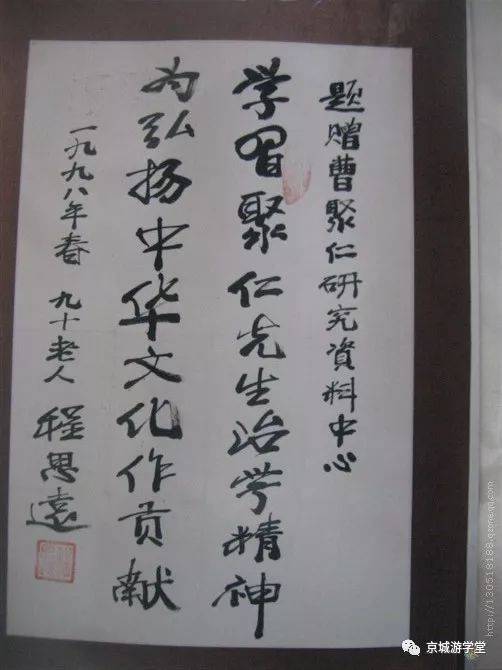 题赠曹聚仁研究資料中心
学習聚仁先生治学精神
为弘扬中华文化作贡献
一九九八年春 九十老人 程思遠
http://130518188.qzone.qq.com
京城游学堂